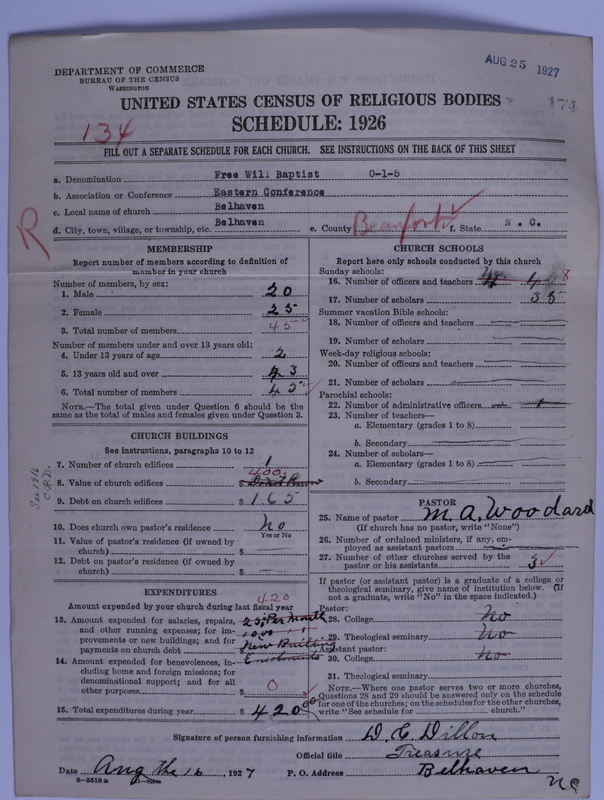 AUG 25 1927
DEPARTMENT OF COMMERCE
BUREAU OF THE CENSUS
WASHINGTON
174
UNITED STATES CENSUS OF RELIGIOUS BODIES
SCHEDULE: 1926
134
FILL OUT A SEPARATE SCHEDULE FOR EACH CHURCH. SEE INSTRUCTIONS ON THE BACK OF THIS SHEET
a. Denomination Free Will Baptist 0-1-5
b. Association or Conference Eastern Conference
c. Local name of church Belhaven
d. City, town, village, or township, etc. Belhaven e. County Beaufort f. State N. C.
R
MEMBERSHIP
Report number of members according to definition of
member in your church
Number of members, by sex:
1. Male 20
2. Female 25
3. Total number of members 45
Number of members under and over 13 years old:
4. Under 13 years of age 2
5. 13 years old and over 43
6. Total number of members 45
NOTE.—The total given under Question 6 should be the
same as the total of males and females given under Question 3.
CHURCH BUILDINGS
See instructions, paragraphs 10 to 12
7. Number of church edifices 1
400
8. Value of church edifices $ Dont Know
9. Debt on church edifices $ 165
See 1916
C.R.D.
10. Does church own pastor's residence No
Yes or No
11. Value of pastor's residence (if owned by
church) $
12. Debt on pastor's residence (if owned by
church) $
EXPENDITURES
Amount expended by your church during last fiscal year
420
13. Amount expended for salaries, repairs, 25 Per Month
and other running expenses; for im-
provements or new buildings; and for
payments on church debt New Building
14. Amount expended for benevolences, in-
cluding home and foreign missions; for
denominational support; and for all
other purposes $ 0
15. Total expenditures during year $ 420 00
CHURCH SCHOOLS
Report here only schools conducted by this church
Sunday schools:
16. Number of officers and teachers 8
17. Number of scholars 35
Summer vacation Bible schools:
18. Number of officers and teachers
19. Number of scholars
Week-day religious schools:
20. Number of officers and teachers
21. Number of scholars
Parochial schools:
22. Number of administrative officers
23. Number of teachers—
a. Elementary (grades 1 to 8)
b. Secondary
24. Number of scholars—
a. Elementary (grades 1 to 8)
b. Secondary
PASTOR
25. Name of pastor M. A. Woodard
(If church has no pastor, write "None")
26. Number of ordained ministers, if any, em-
ployed as assistant pastors
27. Number of other churches served by the
pastor or his assistants 3
If pastor (or assistant pastor) is a graduate of a college or
theological seminary, give name of institution below. (If
not a graduate, write "No" in the space indicated.)
Pastor:
28. College No
29. Theological seminary No
Assistant pastor:
30. College No
31. Theological seminary
NOTE.—Where one pastor serves two or more churches,
Questions 28 and 29 should be answered only on the schedule
for one of the churches; on the schedules for the other churches,
write "See schedule for church."
Signature of person furnishing information D. E. Dillon
Official title Treasure
Date Aug the 16, 1927 P. O. Address Belhaven
NC
8-5518a